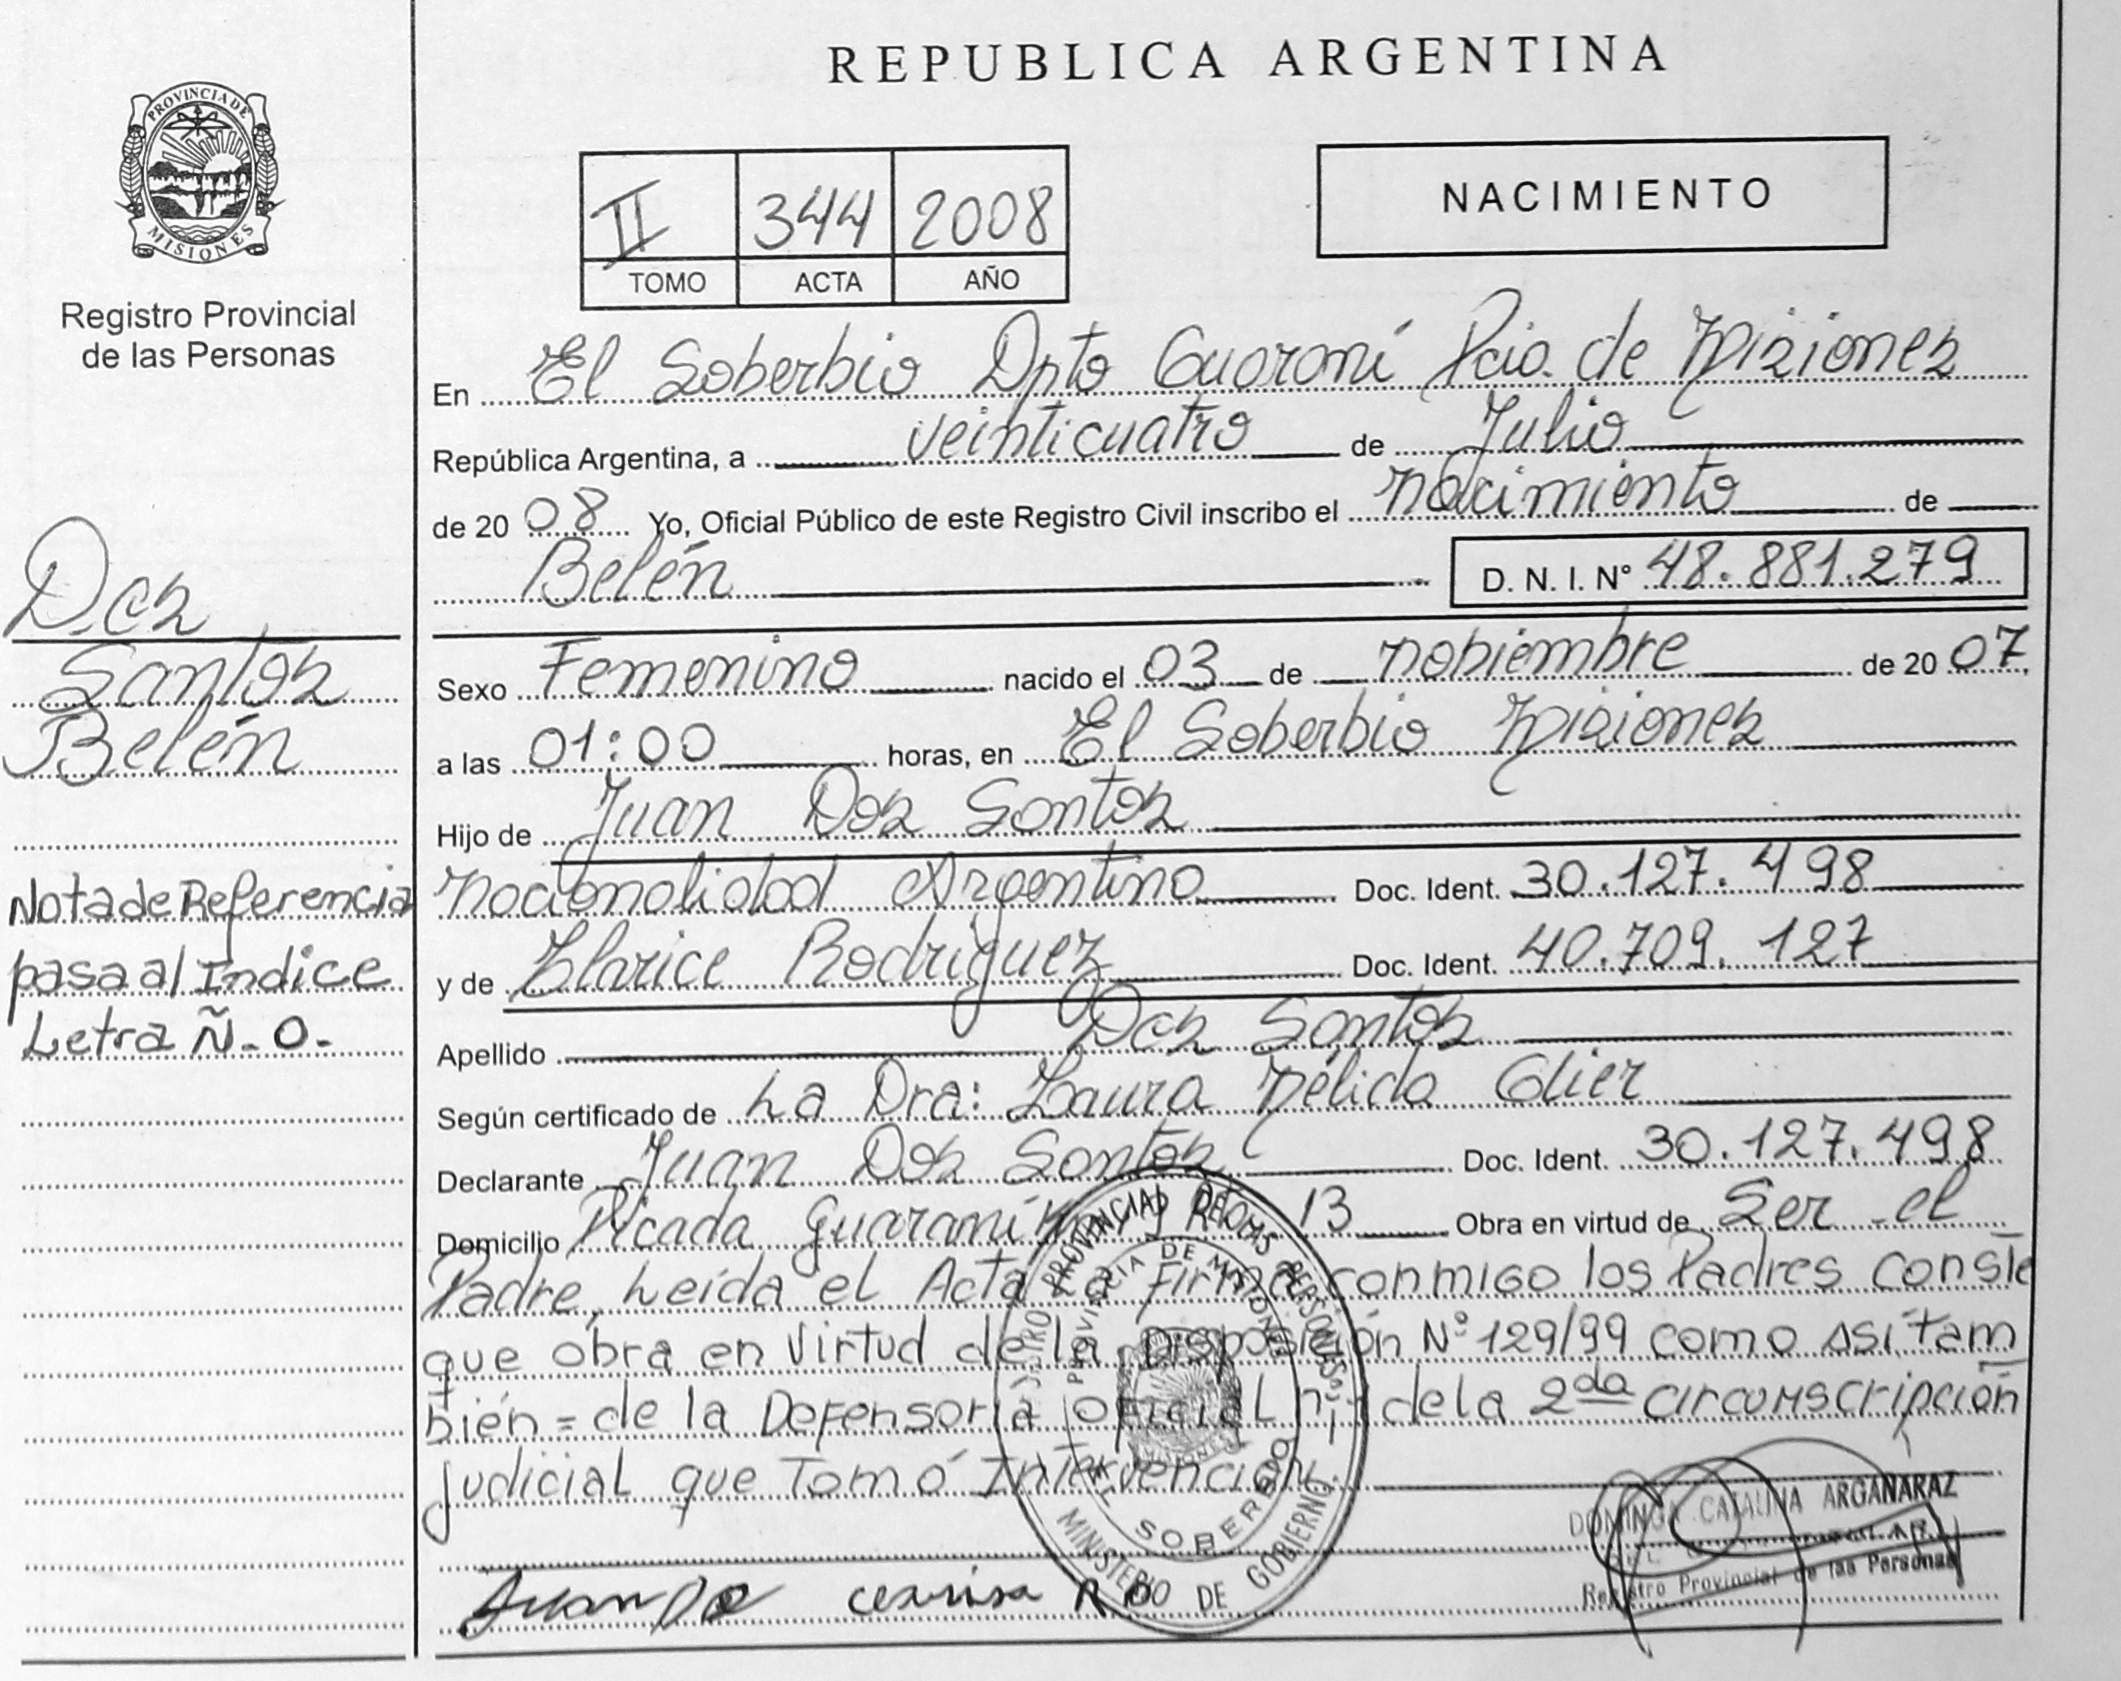 REPUBLICA ARGENTINA
PROVINCIA DE
MISIONES
Registro Provincial
de las Personas
II 344 2008
TOMO ACTA AÑO
NACIMIENTO
En El Soberbio Dpto Guaraní Pcia. de Misiones
República Argentina, a veinticuatro de Julio
de 20 08 Yo, Oficial Público de este Registro Civil inscribo el nacimiento de
Belén D. N. I. Nº 48.881.279
Dos
Santos
Belén
Nota de Referencia
pasa al Indice
Letra Ñ-O-
Sexo Femenino nacido el 03 de nobiembre de 20 07
a las 01:00 horas, en El Soberbio Misiones
Hijo de Juan Dos Santos
nacionalidad Argentino Doc. Ident. 30.127.498
y de Clarice Rodriguez Doc. Ident. 40.709.127
Apellido Dos Santos
Según certificado de La Dra: Laura Nélida
Declarante Juan Dos Santos Doc. Ident. 30.127.498
Domicilio Picada Guaraní 13 Obra en virtud de Ser el
Padre, Leída el Acta La Firma conmigo los Padres conste
que obra en Virtud de la Disposición Nº 129/99 como asi tam
bién = de la Defensoria Oficial nº 1 de la 2da circunscripción
judicial que Tomó Intervención.
REGISTRO PROVINCIAL DE LAS PERSONAS
PROVINCIA DE MISIONES
EL SOBERBIO
MINISTERIO DE GOBIERNO
DOMINGA CATALINA ARGAÑARAZ
Registro Provincial de las Personas